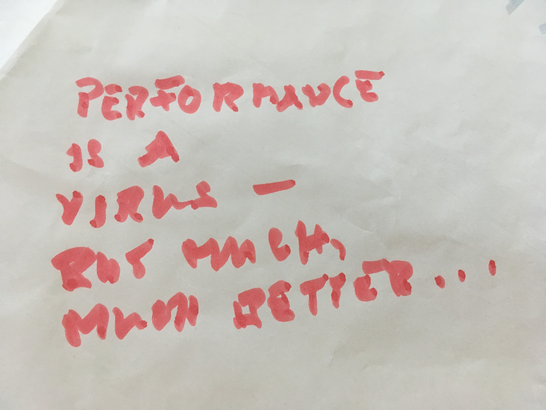 PERFORMANCE
IS A
VIRUS –
BUT MUCH,
MUCH BETTER...